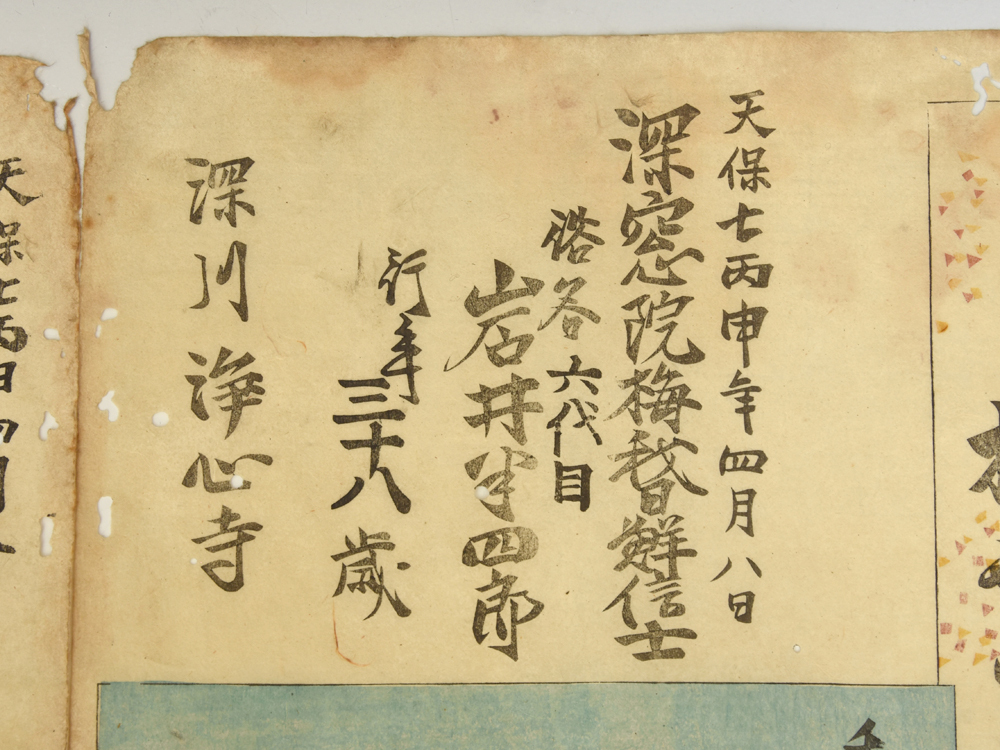 天保七丙申年四月八日
深窓院梅誉鮮信士
俗名 六代目
岩井半四郎
行年
三十八歳
深川 浄心寺
天保七丙申四月